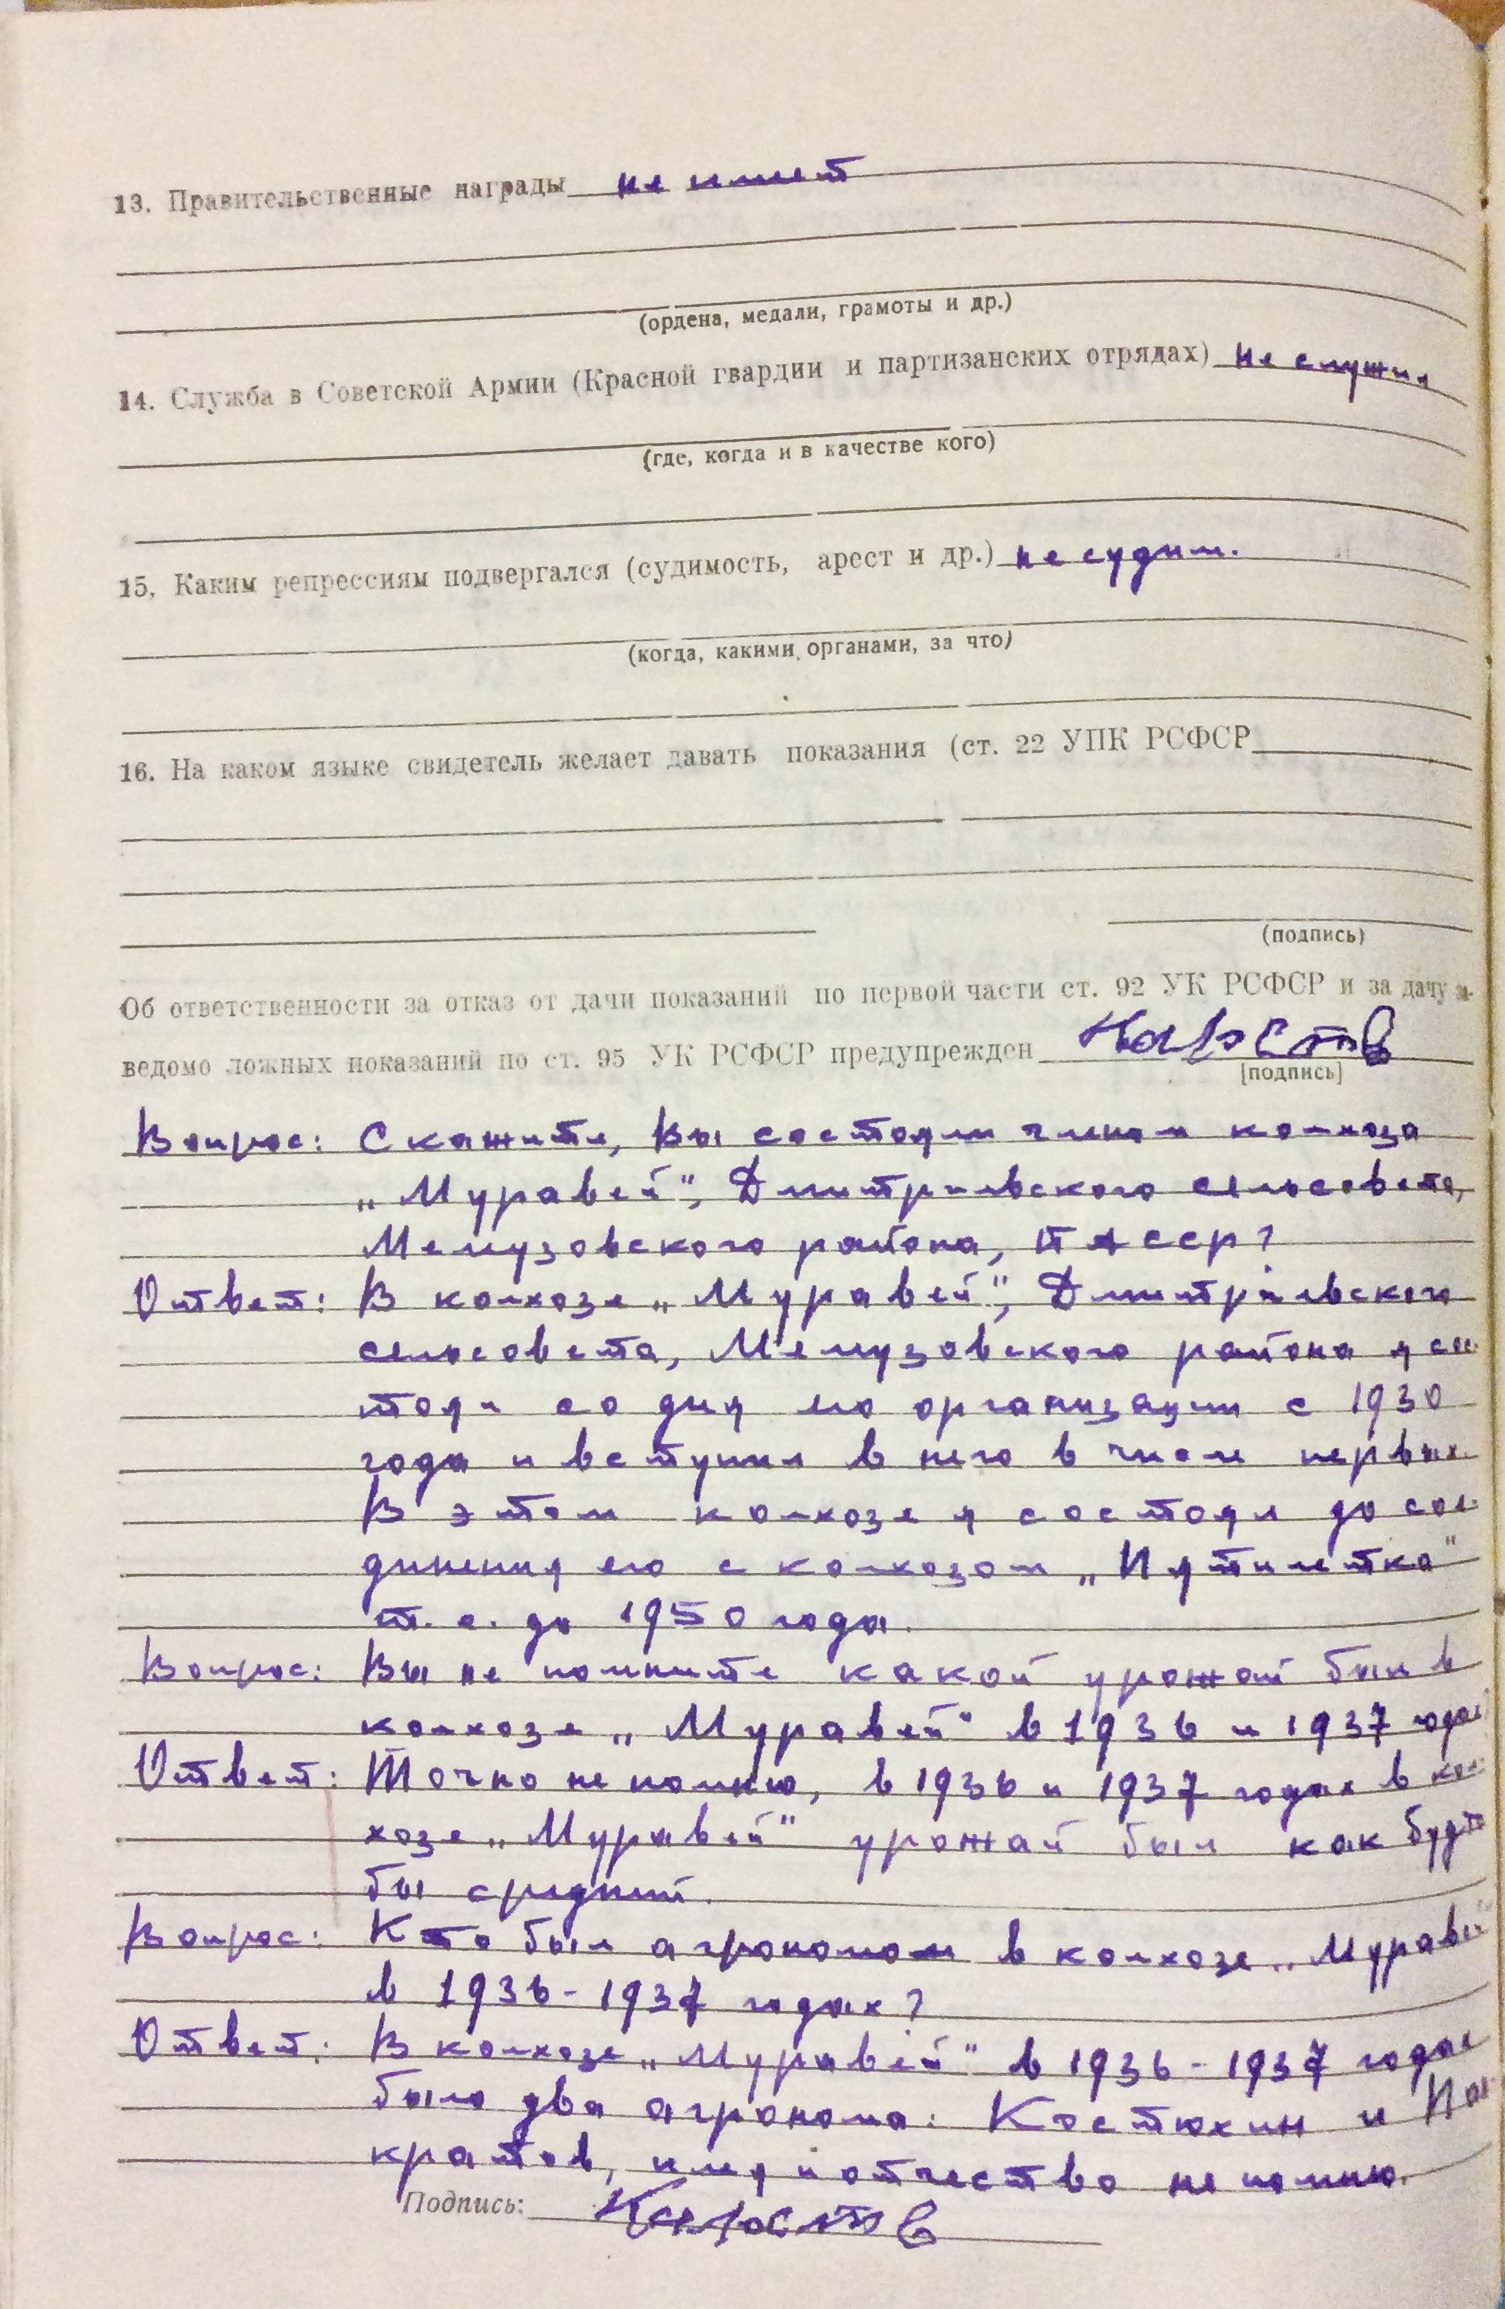 13. Правительственные награды не имеет
(ордена, медали, грамоты и др.)
14. Служба в Советской Армии (Красной гвардии и партизанских отрядах) не служил
(где, когда и в качестве кого)
15. Каким репрессиям подвергался (судимость, арест и др.) не судим.
(когда, какими органами, за что)
16. На каком языке свидетель желает давать показания (ст. 22 УПК РСФСР
(подпись)
Об ответственности за отказ от дачи показаний по первой части ст. 92 УК РСФСР и за дачу за-
ведомо ложных показаний по ст. 95 УК РСФСР предупрежден
[подпись]
Вопрос: Скажите, Вы состояли членом колхоза
„Муравей", Дмитриевского сельсовета,
Мелеузовского района, БАССР?
Ответ: В колхозе „Муравей", Дмитриевского
сельсовета, Мелеузовского района я сос-
тоял со дня его организации с 1930
года и вступил в него в числе первых.
В этом колхозе я состоял до сое-
динения его с колхозом „Пятилетка"
т. е. до 1950 года.
Вопрос: Вы не помните какой урожай был в
колхозе „Муравей" в 1936 и 1937 годах
Ответ: Точно не помню, в 1936 и 1937 годах в кол-
хозе „Муравей" урожай был как будто
бы средний.
Вопрос: Кто был агрономом в колхозе „Муравей
в 1936-1937 годах?
Ответ: В колхозе „Муравей" в 1936-1937 годах
было два агронома: Костюхин и Пан-
кратов, имя и отчество не помню.
Подпись: